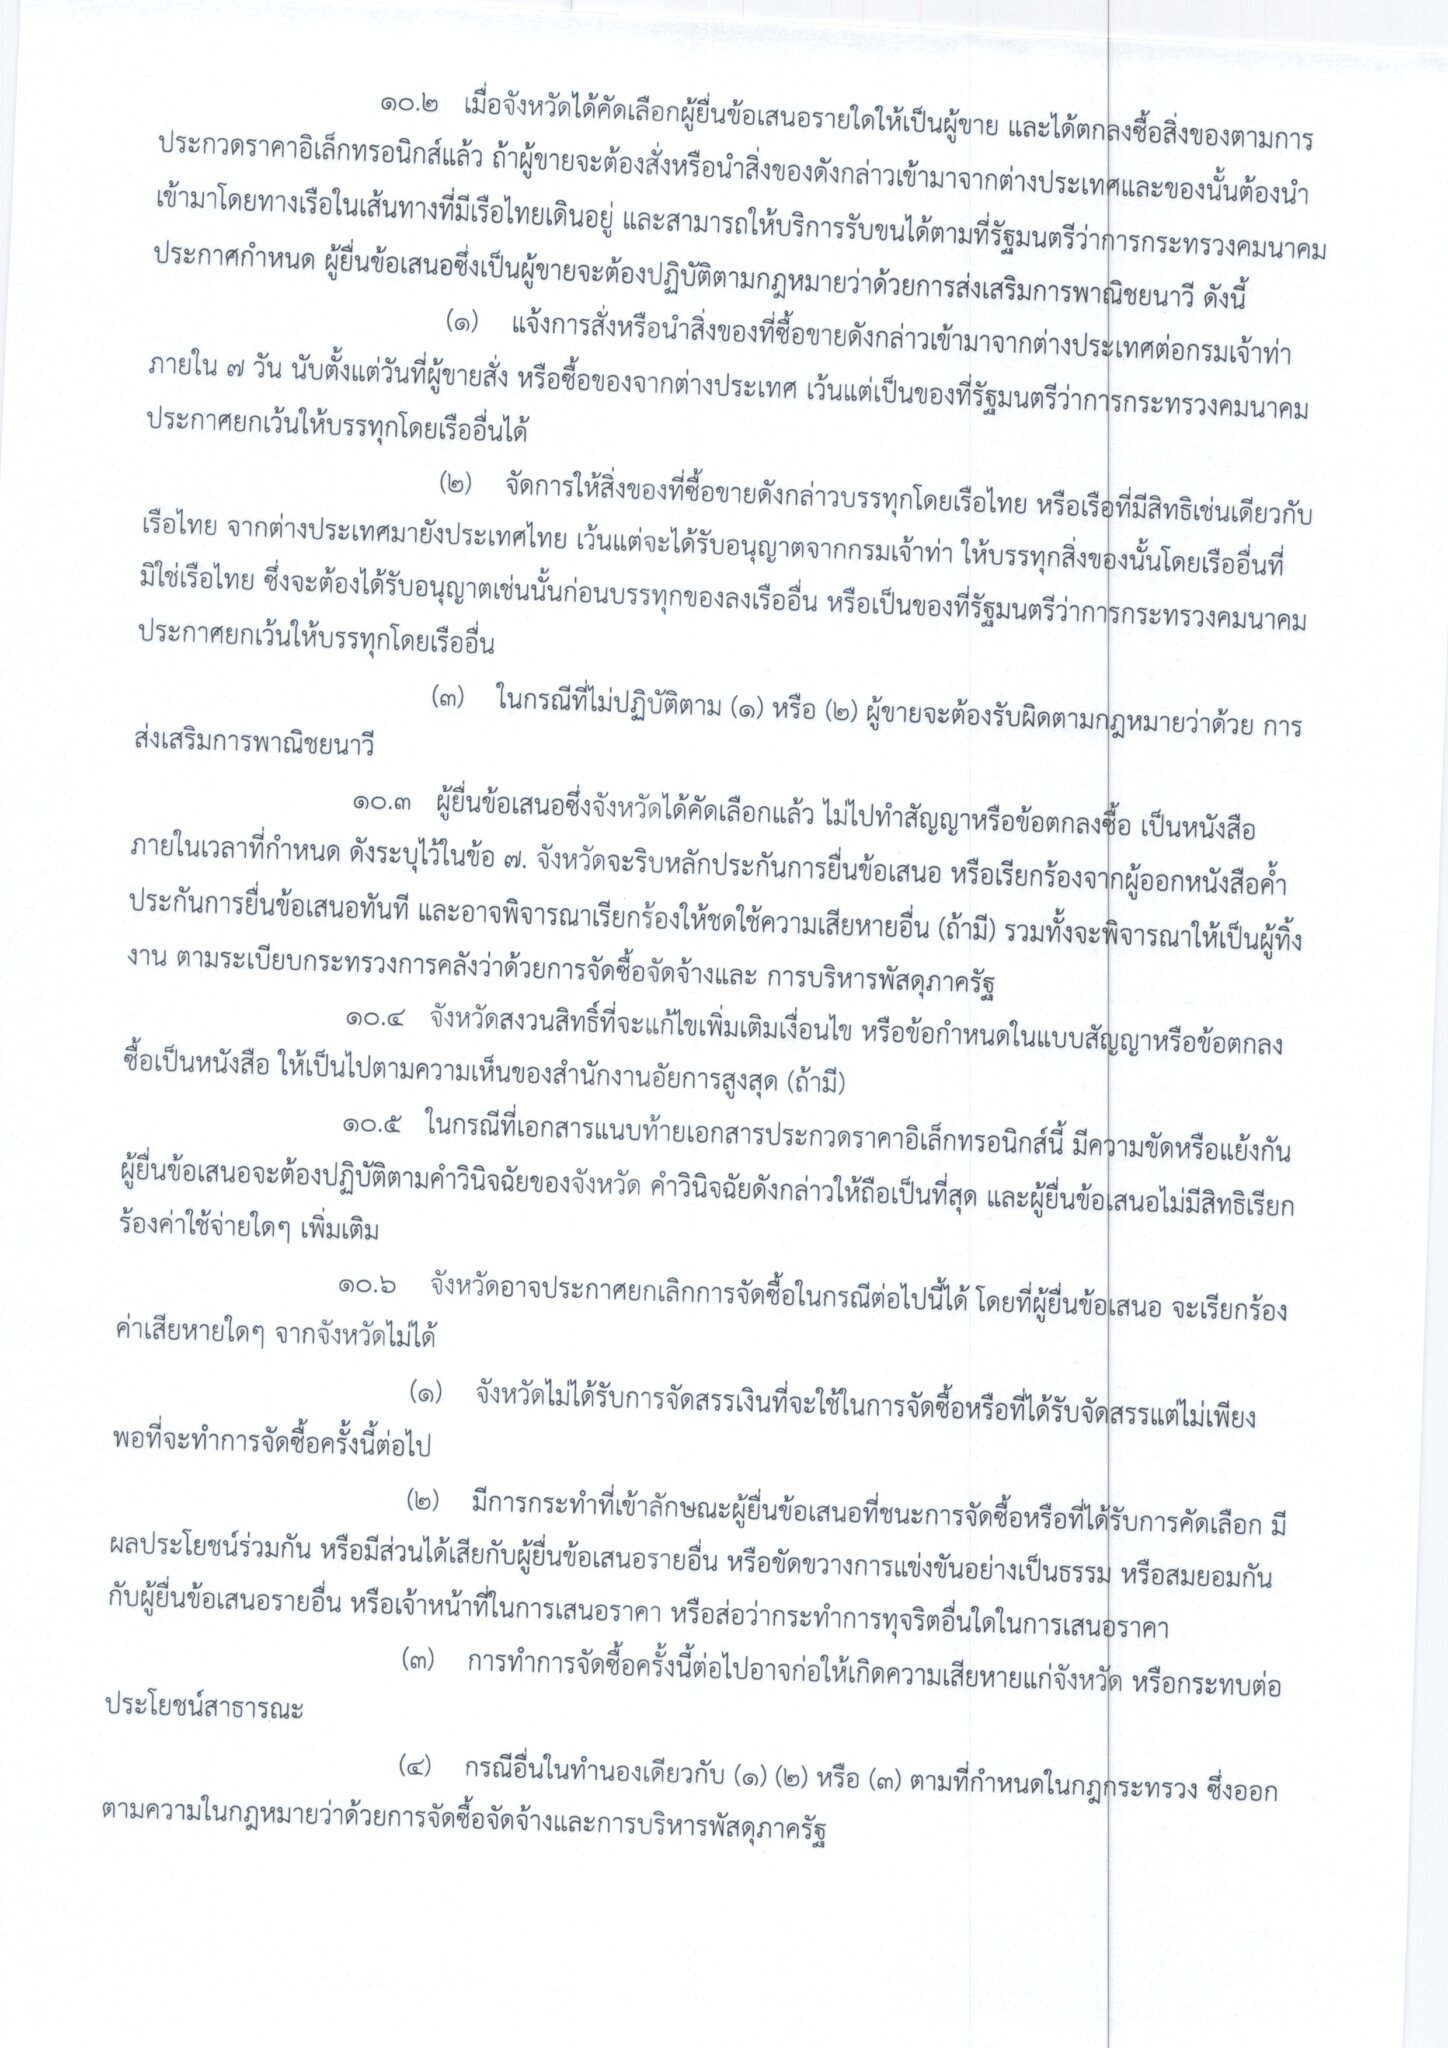 ๑๐.๒ เมื่อจังหวัดได้คัดเลือกผู้ยื่นข้อเสนอรายใดให้เป็นผู้ขาย และได้ตกลงซื้อสิ่งของตามการ
ประกวดราคาอิเล็กทรอนิกส์แล้ว ถ้าผู้ขายจะต้องสั่งหรือนำสิ่งของดังกล่าวเข้ามาจากต่างประเทศและของนั้นต้องนำ
เข้ามาโดยทางเรือในเส้นทางที่มีเรือไทยเดินอยู่ และสามารถให้บริการรับขนได้ตามที่รัฐมนตรีว่าการกระทรวงคมนาคม
ประกาศกำหนด ผู้ยื่นข้อเสนอซึ่งเป็นผู้ขายจะต้องปฏิบัติตามกฎหมายว่าด้วยการส่งเสริมการพาณิชยนาวี ดังนี้
(๑) แจ้งการสั่งหรือนำสิ่งของที่ซื้อขายดังกล่าวเข้ามาจากต่างประเทศต่อกรมเจ้าท่า
ภายใน ๗ วัน นับตั้งแต่วันที่ผู้ขายสั่ง หรือซื้อของจากต่างประเทศ เว้นแต่เป็นของที่รัฐมนตรีว่าการกระทรวงคมนาคม
ประกาศยกเว้นให้บรรทุกโดยเรืออื่นได้
(๒) จัดการให้สิ่งของที่ซื้อขายดังกล่าวบรรทุกโดยเรือไทย หรือเรือที่มีสิทธิเช่นเดียวกับ
เรือไทย จากต่างประเทศมายังประเทศไทย เว้นแต่จะได้รับอนุญาตจากกรมเจ้าท่า ให้บรรทุกสิ่งของนั้นโดยเรืออื่นที่
มิใช่เรือไทย ซึ่งจะต้องได้รับอนุญาตเช่นนั้นก่อนบรรทุกของลงเรืออื่น หรือเป็นของที่รัฐมนตรีว่าการกระทรวงคมนาคม
ประกาศยกเว้นให้บรรทุกโดยเรืออื่น
(๓) ในกรณีที่ไม่ปฏิบัติตาม (๑) หรือ (๒) ผู้ขายจะต้องรับผิดตามกฎหมายว่าด้วย การ
ส่งเสริมการพาณิชยนาวี
๑๐.๓ ผู้ยื่นข้อเสนอซึ่งจังหวัดได้คัดเลือกแล้ว ไม่ไปทำสัญญาหรือข้อตกลงซื้อ เป็นหนังสือ
ภายในเวลาที่กำหนด ดังระบุไว้ในข้อ ๗. จังหวัดจะริบหลักประกันการยื่นข้อเสนอ หรือเรียกร้องจากผู้ออกหนังสือค้ำ
ประกันการยื่นข้อเสนอทันที และอาจพิจารณาเรียกร้องให้ชดใช้ความเสียหายอื่น (ถ้ามี) รวมทั้งจะพิจารณาให้เป็นผู้ทิ้ง
งาน ตามระเบียบกระทรวงการคลังว่าด้วยการจัดซื้อจัดจ้างและ การบริหารพัสดุภาครัฐ
๑๐.๔ จังหวัดสงวนสิทธิ์ที่จะแก้ไขเพิ่มเติมเงื่อนไข หรือข้อกำหนดในแบบสัญญาหรือข้อตกลง
ซื้อเป็นหนังสือ ให้เป็นไปตามความเห็นของสำนักงานอัยการสูงสุด (ถ้ามี)
๑๐.๕ ในกรณีที่เอกสารแนบท้ายเอกสารประกวดราคาอิเล็กทรอนิกส์นี้ มีความขัดหรือแย้งกัน
ผู้ยื่นข้อเสนอจะต้องปฏิบัติตามคำวินิจฉัยของจังหวัด คำวินิจฉัยดังกล่าวให้ถือเป็นที่สุด และผู้ยื่นข้อเสนอไม่มีสิทธิเรียก
ร้องค่าใช้จ่ายใดๆ เพิ่มเติม
๑๐.๖ จังหวัดอาจประกาศยกเลิกการจัดซื้อในกรณีต่อไปนี้ได้ โดยที่ผู้ยื่นข้อเสนอ จะเรียกร้อง
ค่าเสียหายใดๆ จากจังหวัดไม่ได้
(๑) จังหวัดไม่ได้รับการจัดสรรเงินที่จะใช้ในการจัดซื้อหรือที่ได้รับจัดสรรแต่ไม่เพียง
พอที่จะทำการจัดซื้อครั้งนี้ต่อไป
(๒) มีการกระทำที่เข้าลักษณะผู้ยื่นข้อเสนอที่ชนะการจัดซื้อหรือที่ได้รับการคัดเลือก มี
ผลประโยชน์ร่วมกัน หรือมีส่วนได้เสียกับผู้ยื่นข้อเสนอรายอื่น หรือขัดขวางการแข่งขันอย่างเป็นธรรม หรือสมยอมกัน
กับผู้ยื่นข้อเสนอรายอื่น หรือเจ้าหน้าที่ในการเสนอราคา หรือส่อว่ากระทำการทุจริตอื่นใดในการเสนอราคา
(๓) การทำการจัดซื้อครั้งนี้ต่อไปอาจก่อให้เกิดความเสียหายแก่จังหวัด หรือกระทบต่อ
ประโยชน์สาธารณะ
(๔) กรณีอื่นในทำนองเดียวกับ (๑) (๒) หรือ (๓) ตามที่กำหนดในกฎกระทรวง ซึ่งออก
ตามความในกฎหมายว่าด้วยการจัดซื้อจัดจ้างและการบริหารพัสดุภาครัฐ